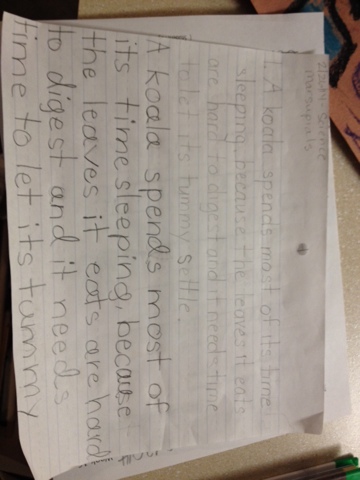 science
marsupials
A koala spends most of its time
sleeping, because the leaves it eats
are hard to digest and it needs time
to let its tummy settle.
A koala spends most of
its time sleeping, because
the leaves it eats are hard
to digest and it needs
time to let its tummy